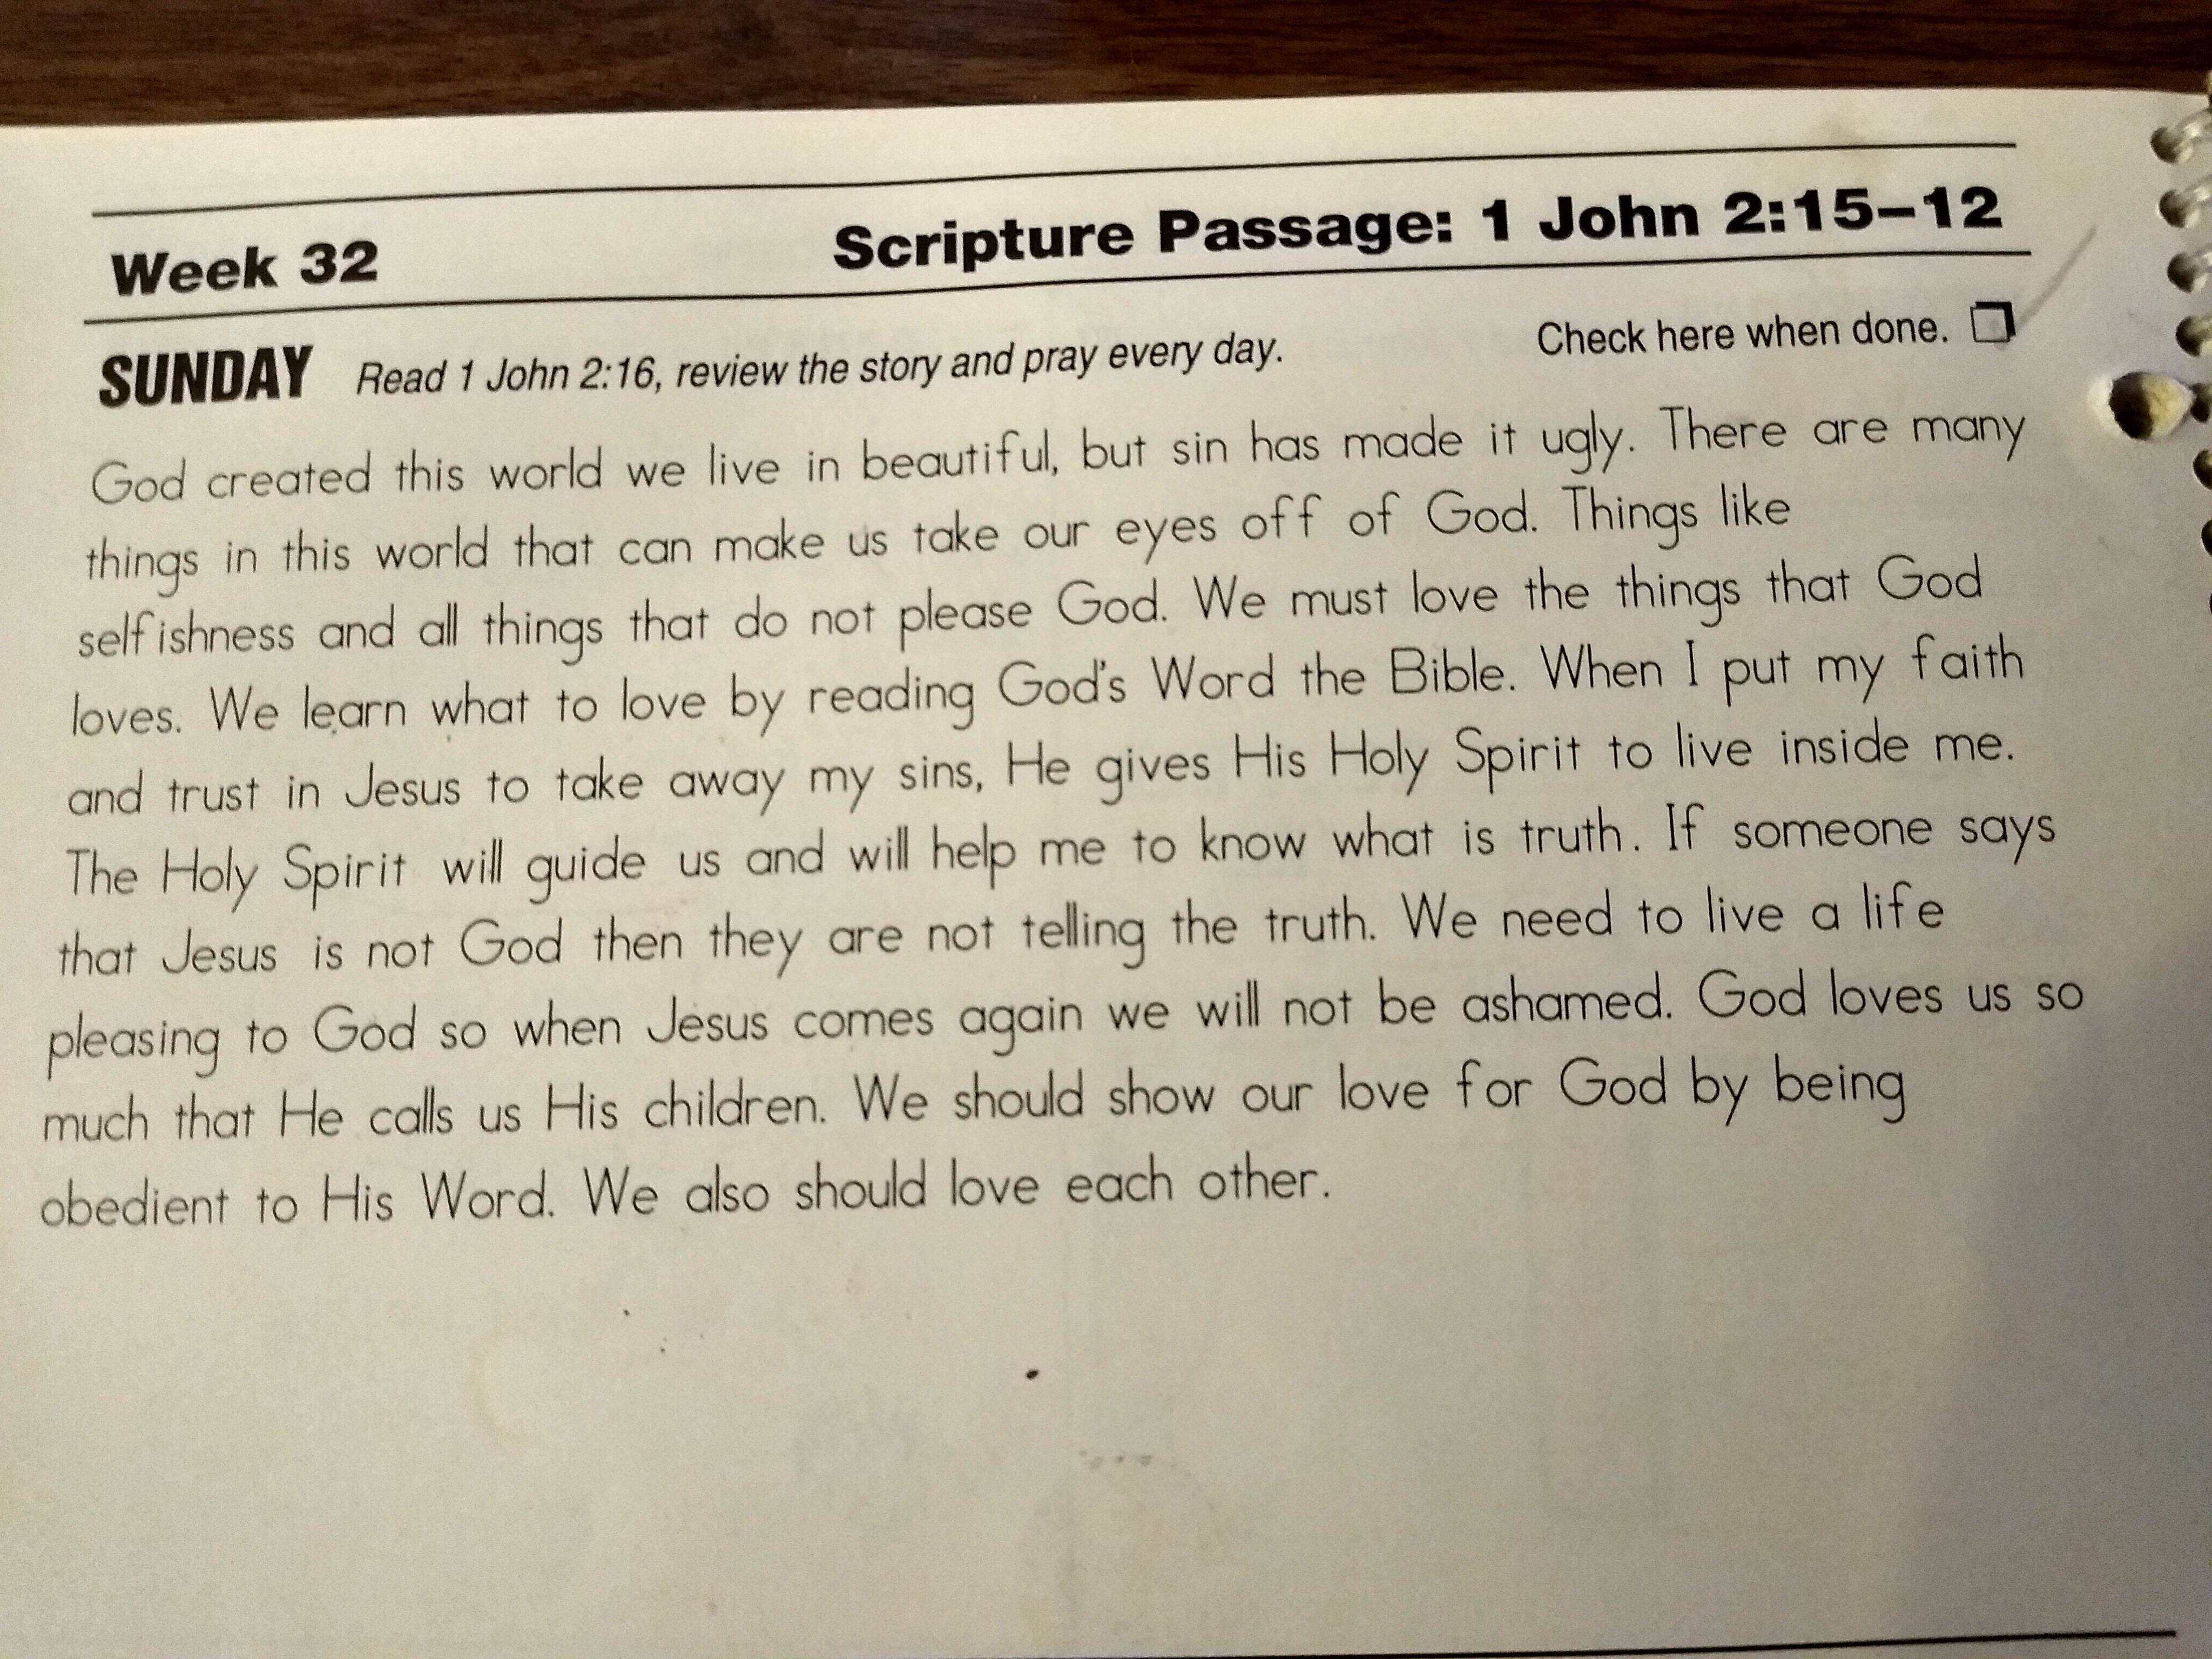 Week 32 Scripture Passage: 1 John 2:15–12
SUNDAY Read 1 John 2:16, review the story and pray every day. Check here when done. ❏
God created this world we live in beautiful, but sin has made it ugly. There are many
things in this world that can make us take our eyes off of God. Things like
selfishness and all things that do not please God. We must love the things that God
loves. We learn what to love by reading God's Word the Bible. When I put my faith
and trust in Jesus to take away my sins, He gives His Holy Spirit to live inside me.
The Holy Spirit will guide us and will help me to know what is truth. If someone says
that Jesus is not God then they are not telling the truth. We need to live a life
pleasing to God so when Jesus comes again we will not be ashamed. God loves us so
much that He calls us His children. We should show our love for God by being
obedient to His Word. We also should love each other.